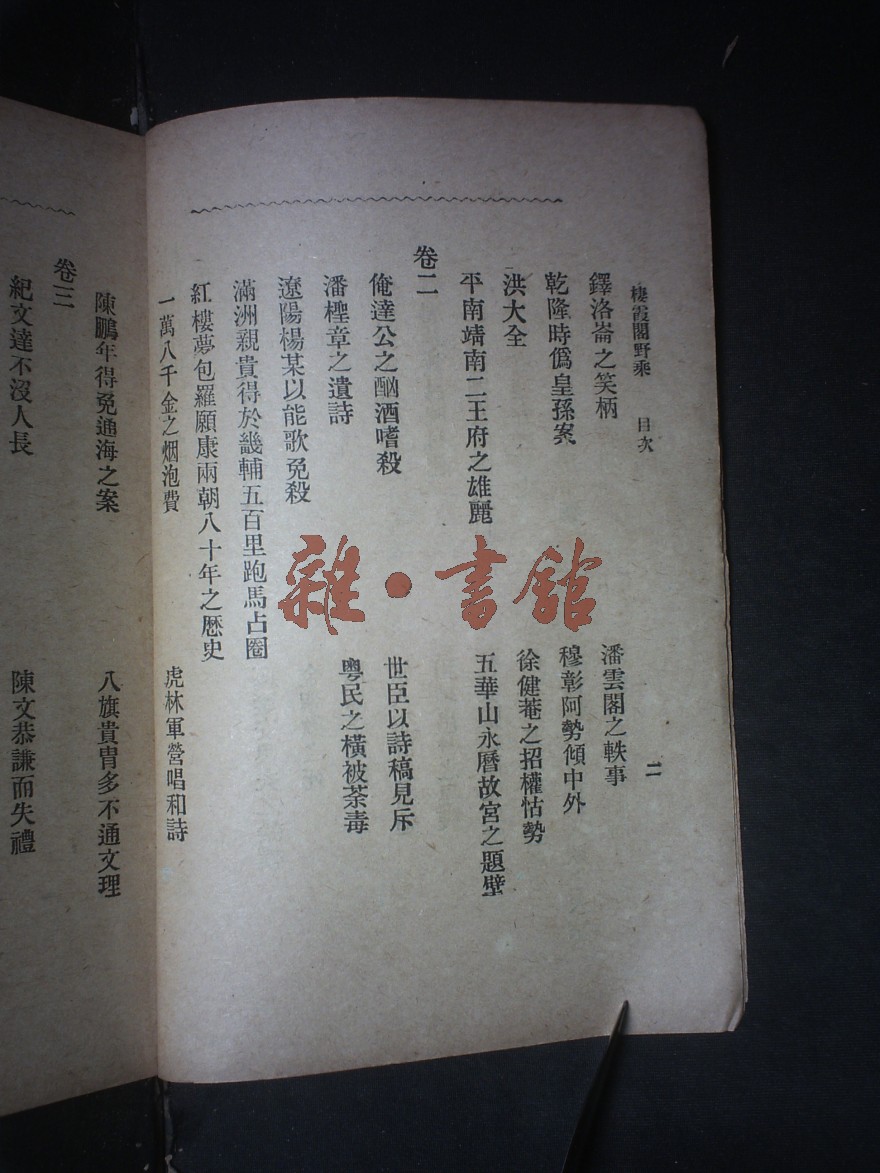 棲霞閣野乘　目次　二
鐸洛崙之笑柄　潘雲閣之軼事
乾隆時僞皇孫案　穆彰阿勢傾中外
洪大全　徐健菴之招權怙勢
平南靖南二王府之雄麗　五華山永曆故宮之題壁
卷二
俺達公之酗酒嗜殺　世臣以詩稿見斥
潘檉章之遺詩　粵民之橫被荼毒
遼陽楊某以能歌免殺
滿洲親貴得於畿輔五百里跑馬占圈
紅樓夢包羅願康兩朝八十年之歷史
一萬八千金之烟泡費　虎林軍營唱和詩
陳鵬年得免通海之案　八旗貴胄多不通文理
卷三
紀文達不沒人長　陳文恭謙而失禮
雜·書館